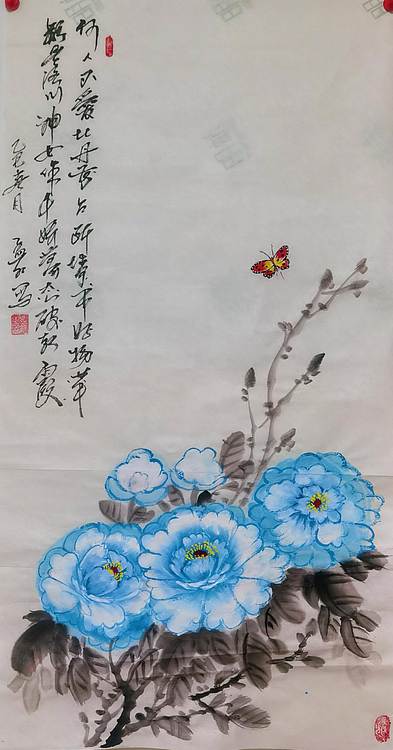 何人不愛牡丹花占断城中好物華
疑是洛川神女作千娇萬态破朝霞
乙巳春月
写